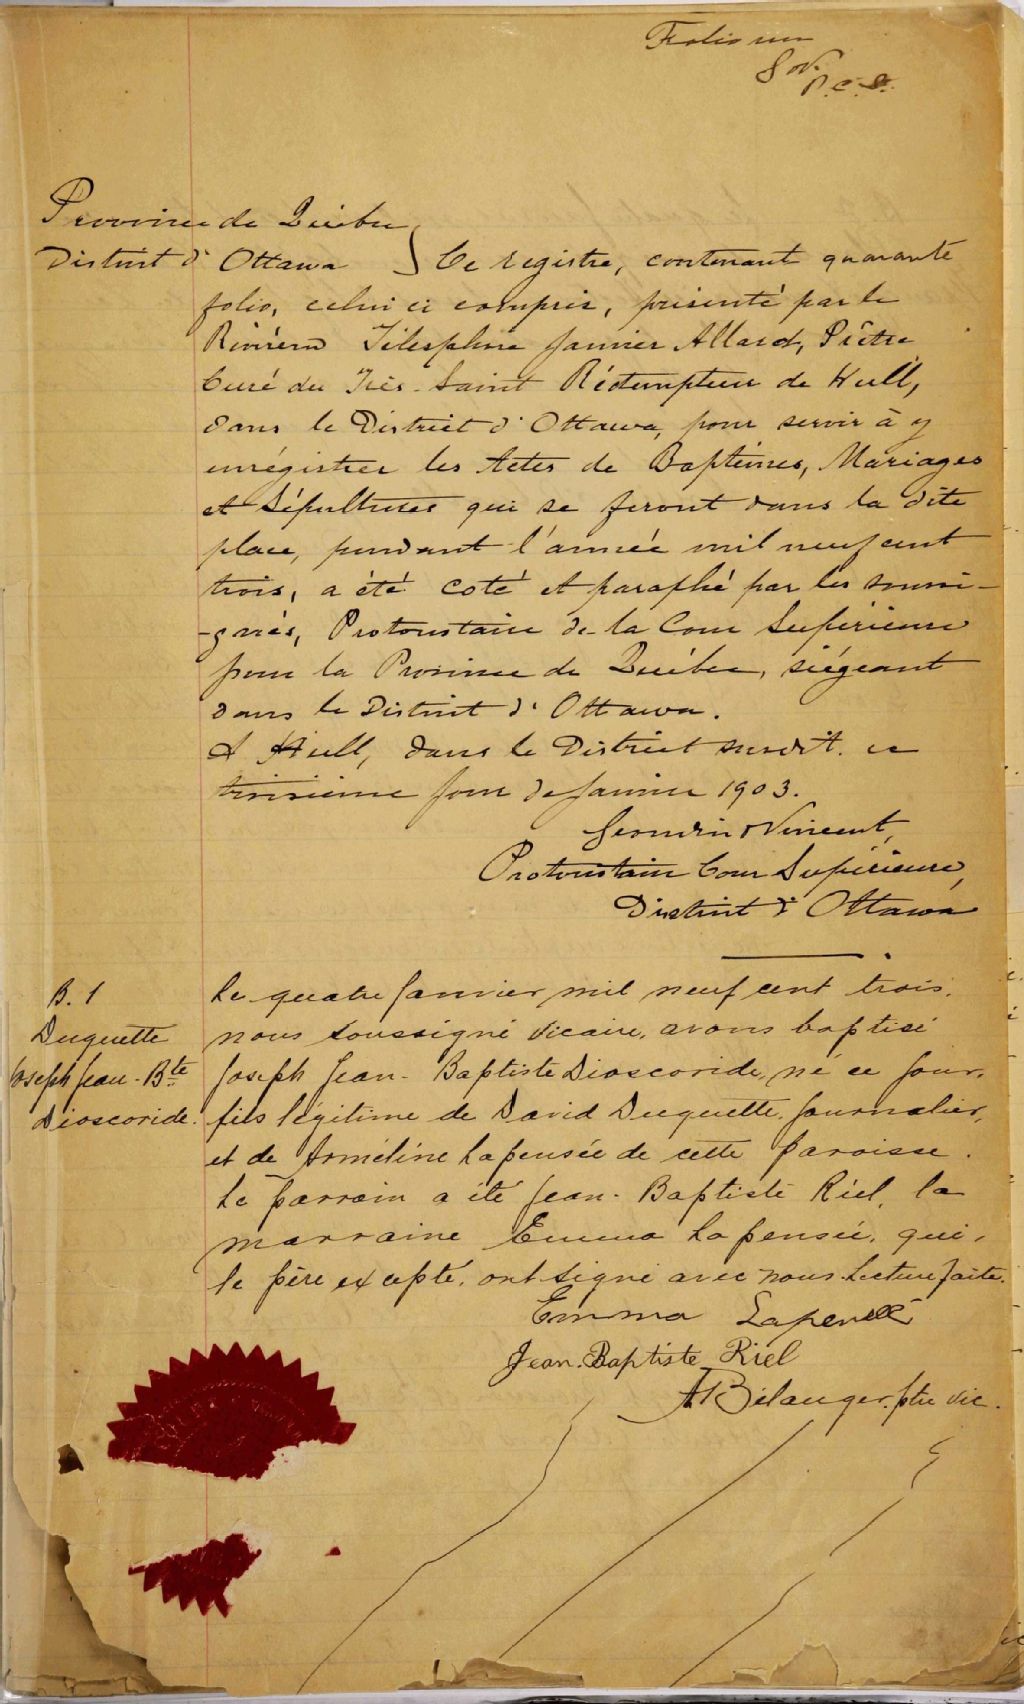 Folio un
G & V.
P. C. S.
Province de Québec
District d'Ottawa } Ce registre, contenant quarante
folio, celui ci compris, présenté par le
Révérend Télesphore Janvier Allard, Prêtre
Curé du Très-Saint Rédempteur de Hull,
dans le District d'Ottawa, pour servir à y
enrégistrer les Actes de Baptêmes, Mariages
et Sépultures qui se feront dans la dite
place, pendant l'année mil neuf cent
trois, a été coté et paraphé par les soussi-
-gnés, Protonotaire de la Cour Supérieure
pour la Province de Québec, siégeant
dans le District d'Ottawa.
A Hull, dans le District susdit. ce
troisième jour de Janvier 1903.
& Vincent,
Protonotaire Cour Supérieure,
District d'Ottawa
B. 1
Duquette
Joseph Jean-Bte
Dioscoride.
Le quatre Janvier mil neuf cent trois.
nous soussigné vicaire, avons baptisé
Joseph Jean-Baptiste Dioscoride, né ce jour,
fils légitime de David Duquette, journalier,
et de Arméline Lapensée de cette paroisse.
Le parrain a été Jean-Baptiste Riel, la
marraine Emma Lapensée, qui,
le père excepté, ont signé avec nous. Lecture faite.
Emma Lapensée
Jean-Baptiste Riel
A Bélanger. ptre vic.